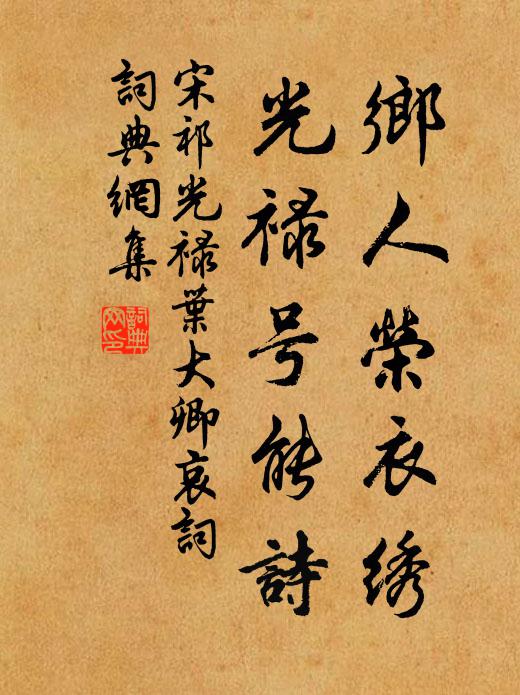 鄉人榮衣綉
光禄号能詩
宋祁光禄葉大卿哀詞
詞典網集
詞典网印